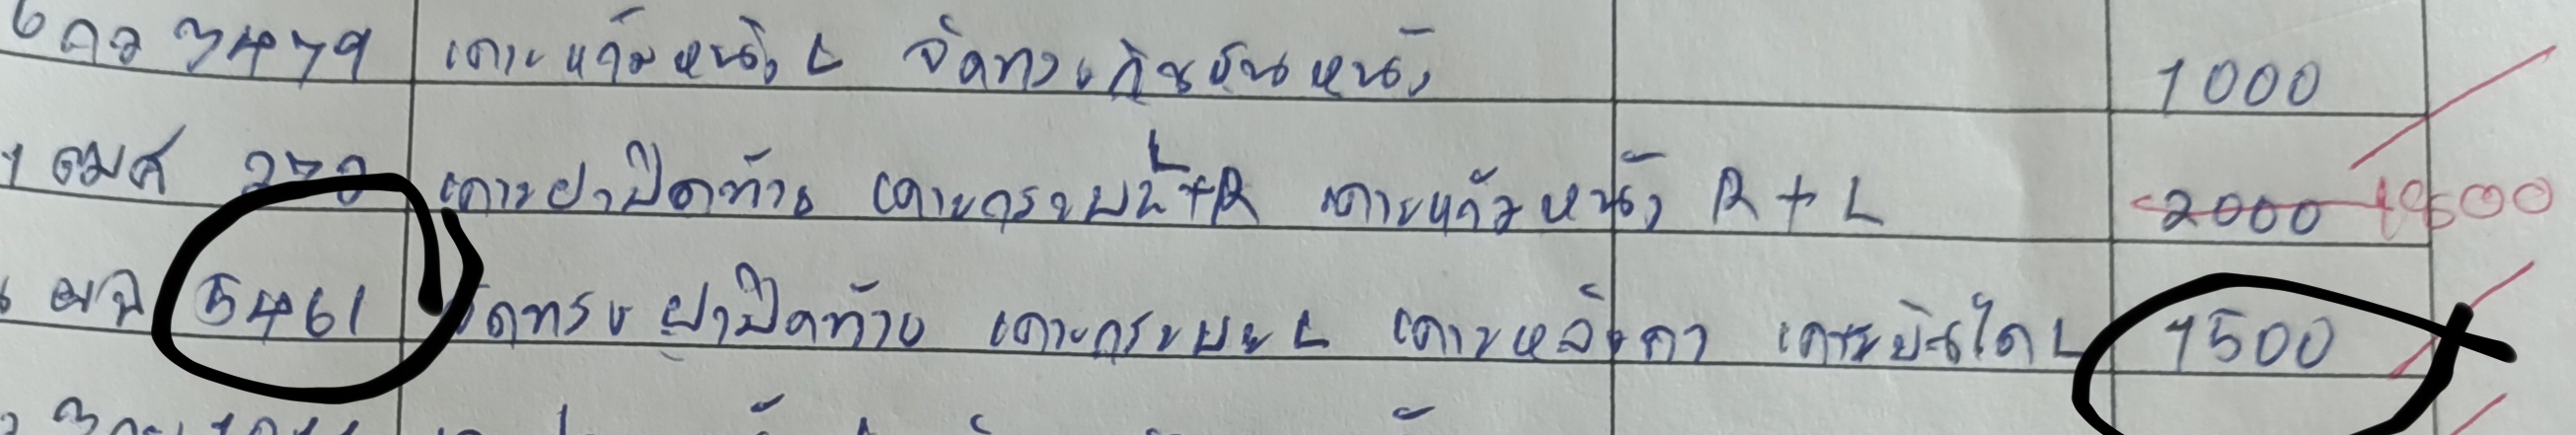 6 กว 3479 เคาะแก้มหน้า L จัดทรงกันชนหน้า 1000
1 ฒศ 270 เคาะฝาปิดท้าย เคาะกระบะ L+R เคาะแก้มหน้า R+L 2000 1800
5461 จัดทรง ฝาปิดท้าย เคาะกระบะ L เคาะหลังคา เคาะบันได L 1500